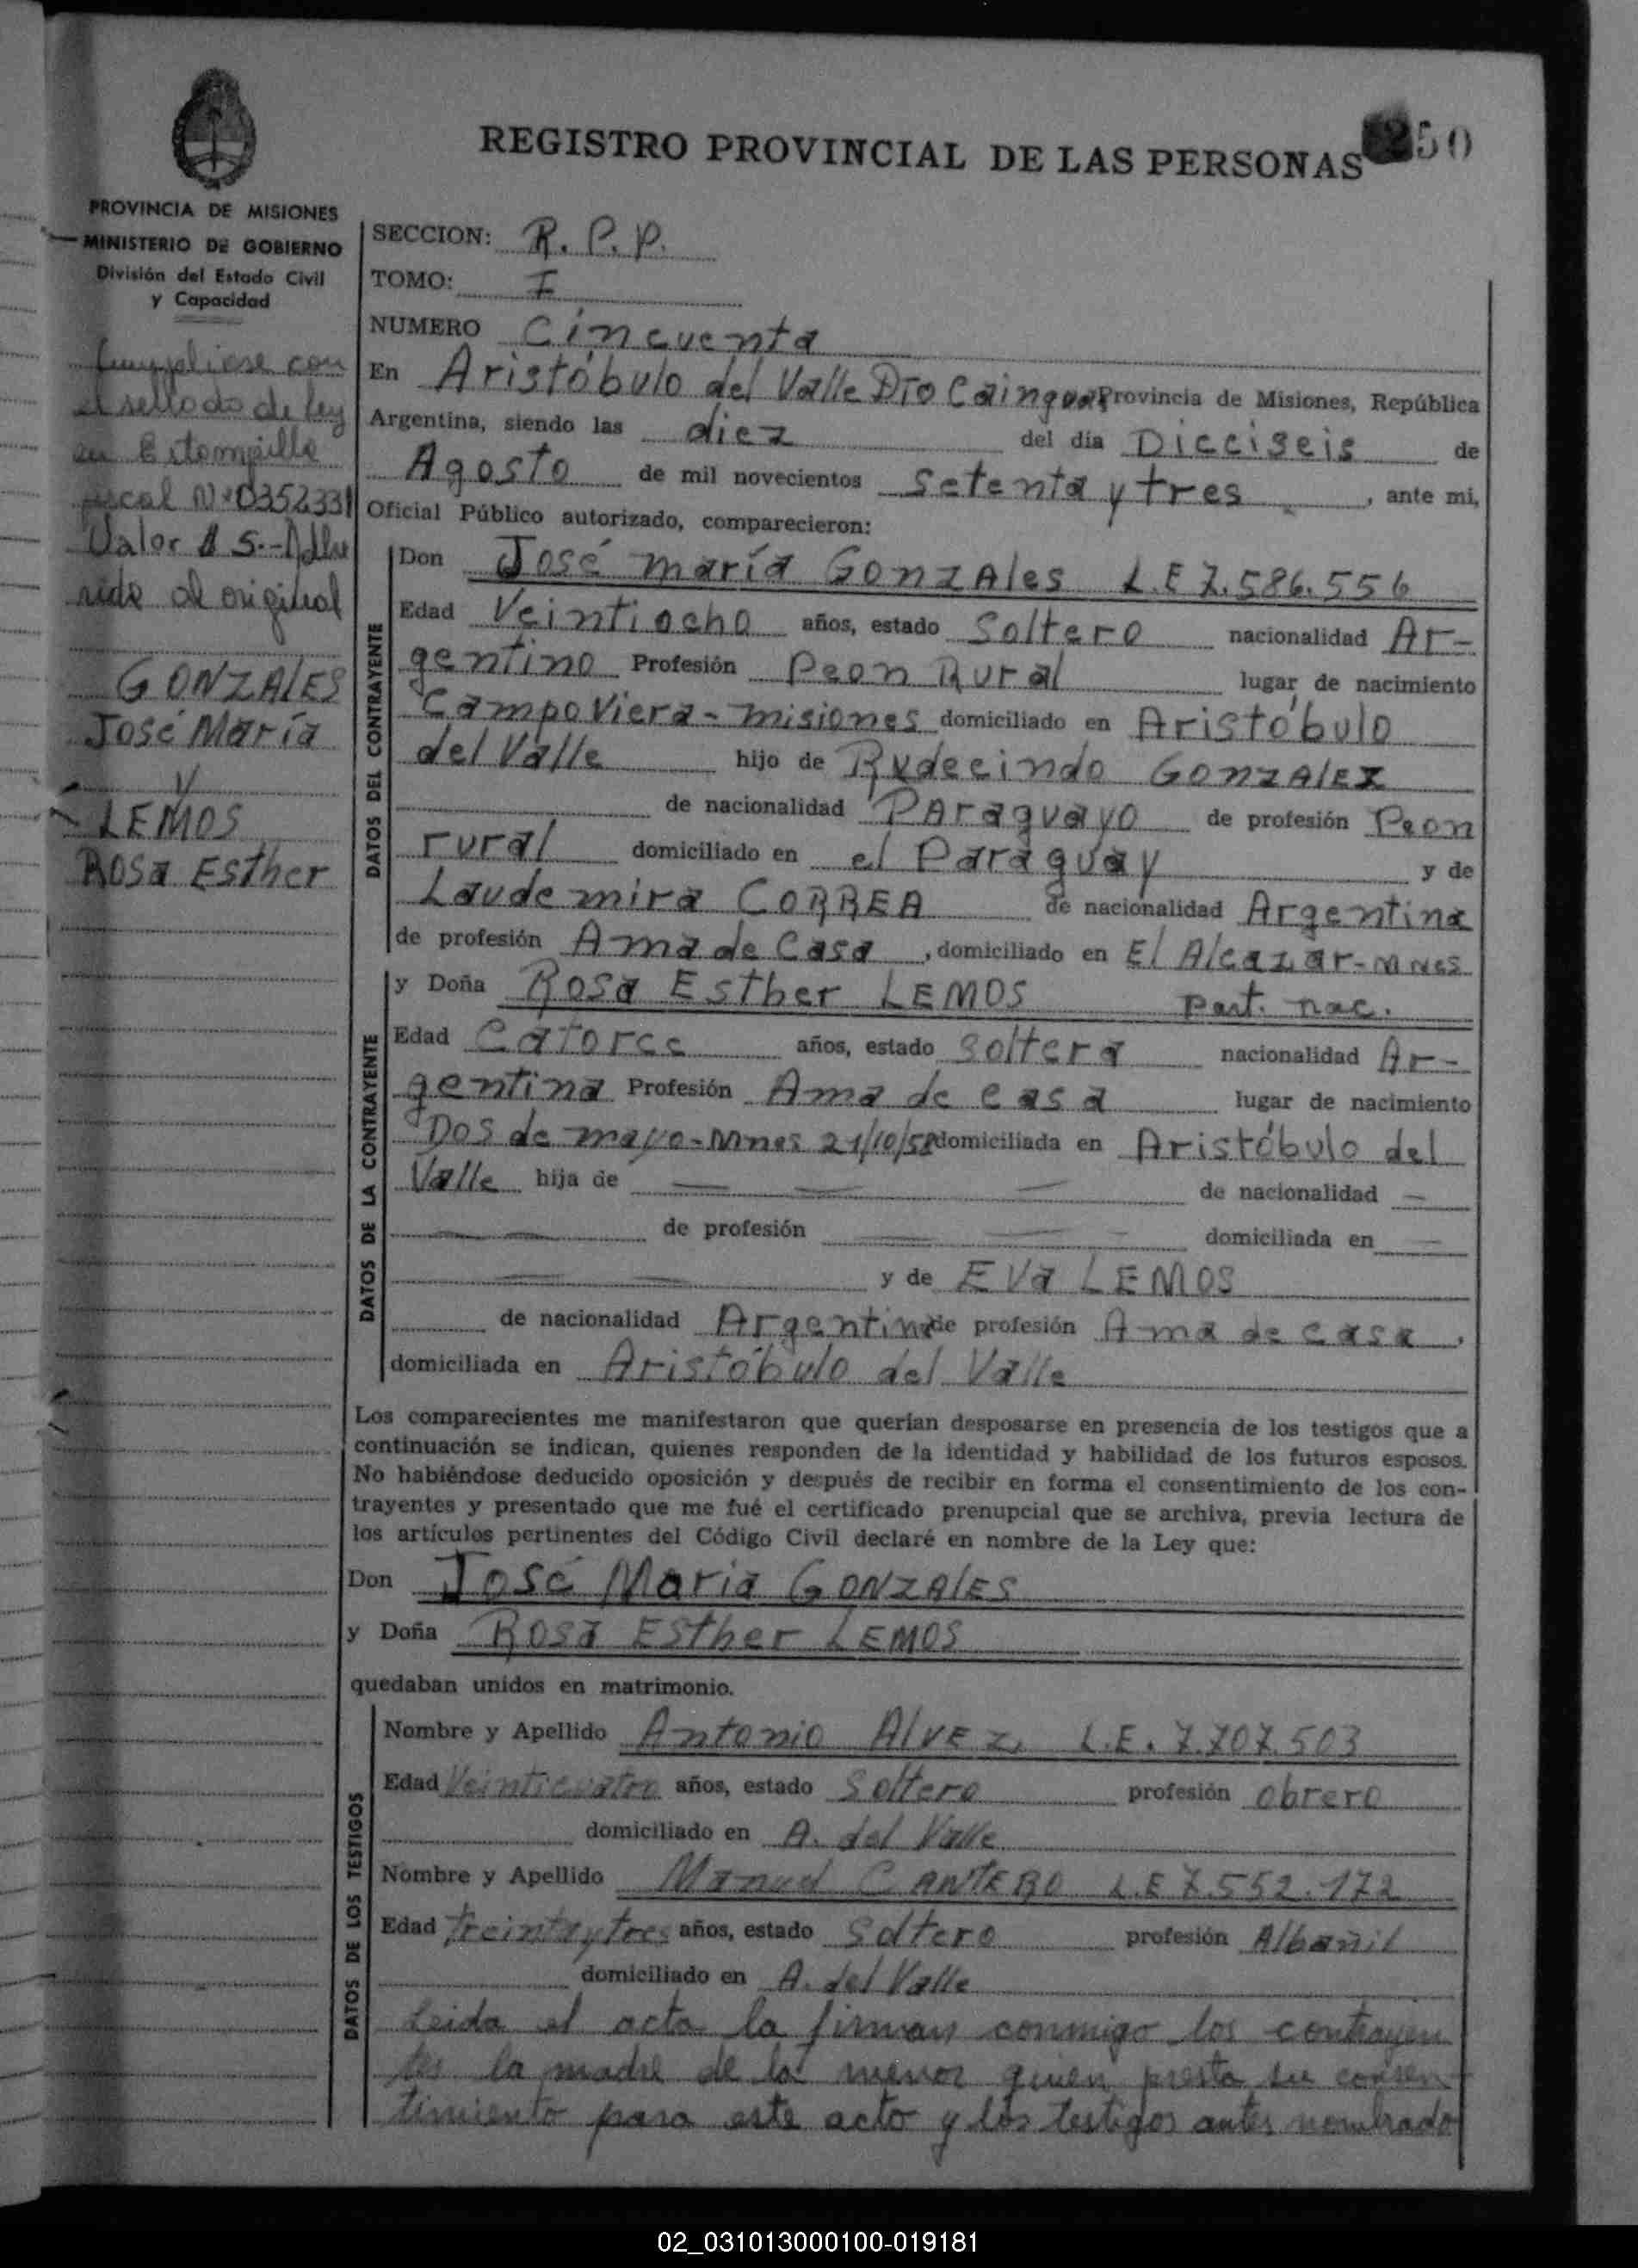 REGISTRO PROVINCIAL DE LAS PERSONAS
250
PROVINCIA DE MISIONES
MINISTERIO DE GOBIERNO
División del Estado Civil
y Capacidad
Cumpliose con
el sellado de ley
en Estampilla
fiscal Nº 0352331
Valor $ 5.- Adhe
rido al original
GONZALES
José María
y
LEMOS
Rosa Esther
SECCION: R. P. P.
TOMO: I
NUMERO Cincuenta
En Aristóbulo del Valle DTO Cainguas Provincia de Misiones, República
Argentina, siendo las diez del día Dieciseis de
Agosto de mil novecientos setenta y tres, ante mi,
Oficial Público autorizado, comparecieron:
DATOS DEL CONTRAYENTE
Don José maría GONZALES L.E 7.586.556
Edad Veintiocho años, estado Soltero nacionalidad Ar-
gentino Profesión Peon Rural lugar de nacimiento
Campo Viera - misiones domiciliado en Aristóbulo
del Valle hijo de Rudecindo GONZALEZ
de nacionalidad Paraguayo de profesión Peon
rural domiciliado en el Paraguay y de
Laudemira CORREA de nacionalidad Argentina
de profesión Ama de Casa, domiciliado en El Alcazar - Mnes
DATOS DE LA CONTRAYENTE
y Doña Rosa Esther LEMOS Part. nac.
Edad Catorce años, estado soltera nacionalidad Ar-
gentina Profesión Ama de casa lugar de nacimiento
Dos de mayo - Mnes 21/10/58 domiciliada en Aristóbulo del
Valle hija de — — — de nacionalidad —
— — de profesión — — domiciliada en —
— — y de EVa LEMOS
de nacionalidad Argentina de profesión Ama de casa,
domiciliada en Aristóbulo del Valle
Los comparecientes me manifestaron que querían desposarse en presencia de los testigos que a
continuación se indican, quienes responden de la identidad y habilidad de los futuros esposos.
No habiéndose deducido oposición y después de recibir en forma el consentimiento de los con-
trayentes y presentado que me fué el certificado prenupcial que se archiva, previa lectura de
los artículos pertinentes del Código Civil declaré en nombre de la Ley que:
Don José Maria GONZALES
y Doña Rosa Esther LEMOS
quedaban unidos en matrimonio.
DATOS DE LOS TESTIGOS
Nombre y Apellido Antonio AlVEZ, L.E. 7.707.503
Edad Veinticuatro años, estado Soltero profesión obrero
domiciliado en A. del Valle
Nombre y Apellido Manuel CANTERO L.E 7.552.172
Edad treinta y tres años, estado Soltero profesión Albañil
domiciliado en A. del Valle
Leida el acta la firman conmigo los contrayen
tes la madre de la menor quien presta su consen
timiento para este acto y los testigos antes nombrado
02_031013000100-019181